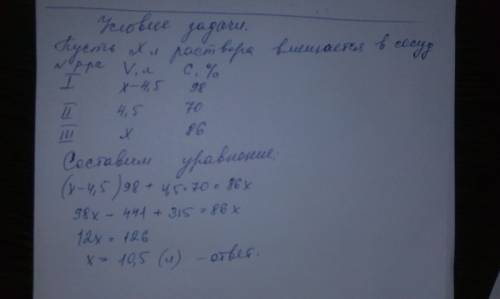 Условие задачи.
Пусть X л раствора вмещается в сосуд
N р-ра V, л C, %
I x-4,5 98
II 4,5 70
III x 86
Составим уравнение:
(x-4,5)98 + 4,5·70 = 86x
98x - 441 + 315 = 86x
12x = 126
x = 10,5 (л) - ответ.